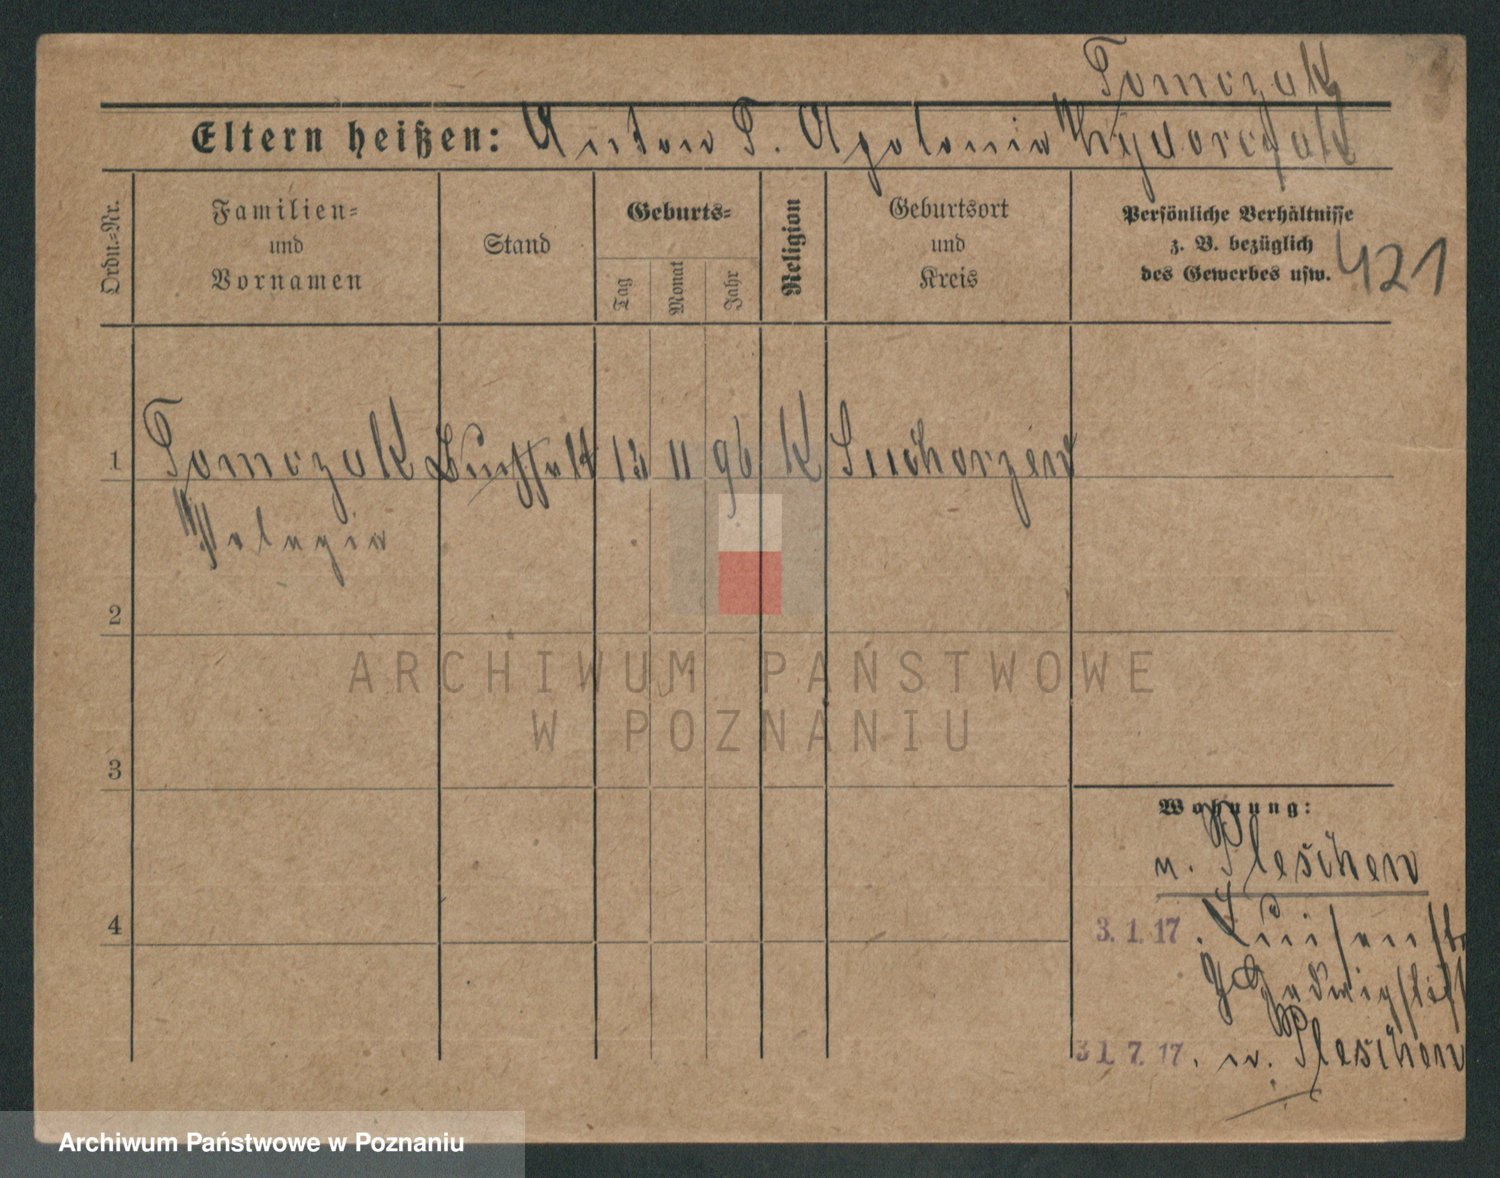 Tomczak
Eltern heißen: Anton T. Apolonia
421
Ordn.-Nr.
Familien=
und
Vornamen
Stand
Geburts=
Tag
Monat
Jahr
Religion
Geburtsort
und
Kreis
Persönliche Verhältnisse
z. B. bezüglich
des Gewerbes usw.
1 Tomczak 13 11 96 K Sucharzew
Pelagia
2
3
4
Wohnung:
n. Pleschen
3. 1. 17. Luisenstr
Hedwigstift
31. 7. 17. n. Pleschen
ARCHIWUM PAŃSTWOWE
W POZNANIU
Archiwum Państwowe w Poznaniu